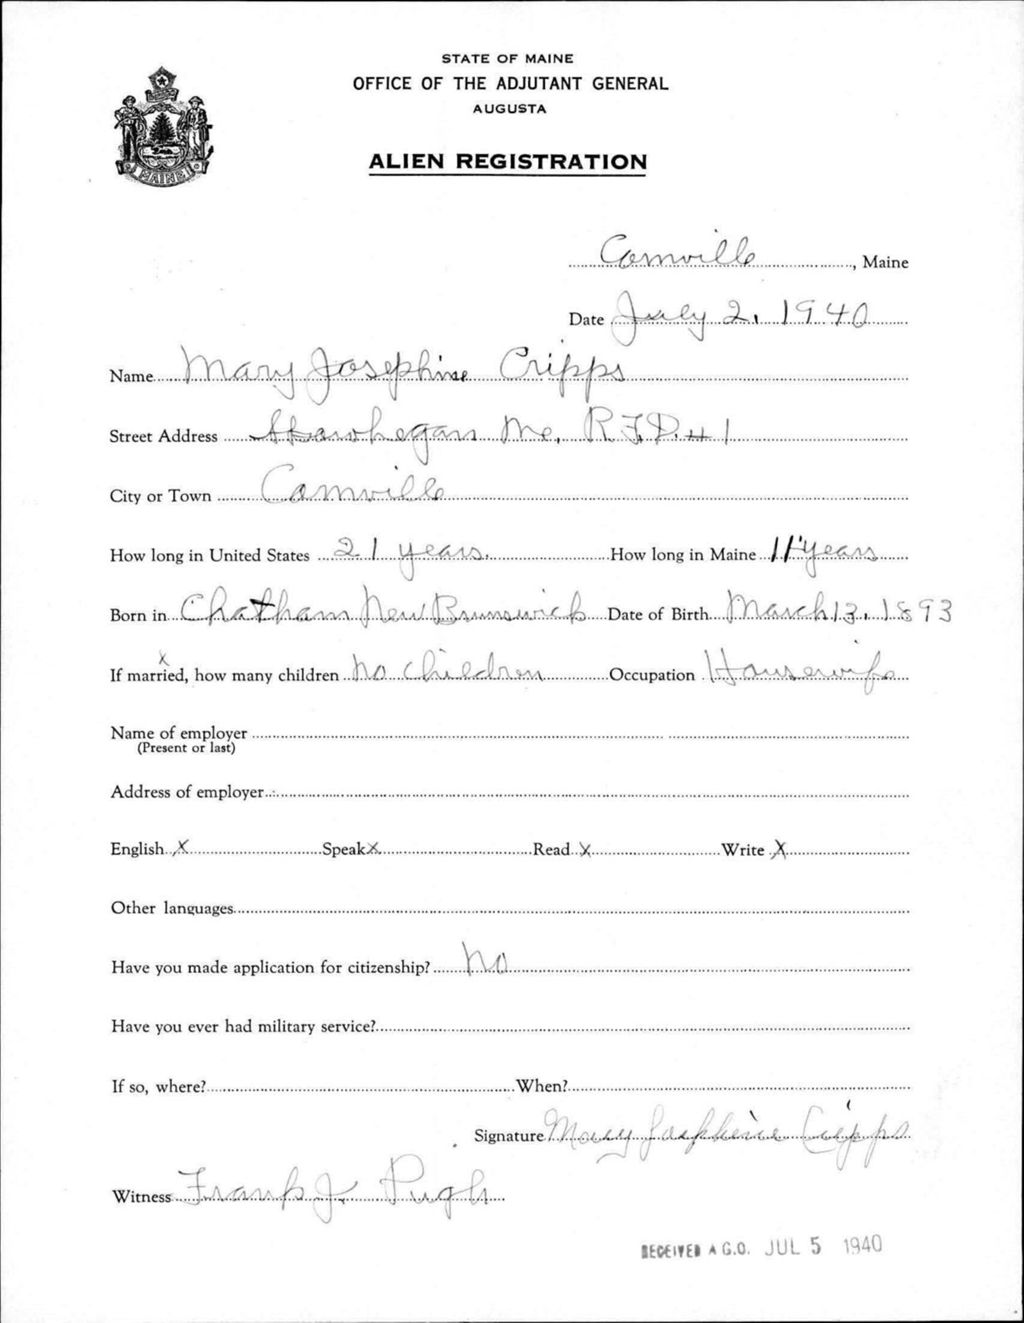 STATE OF MAINE
OFFICE OF THE ADJUTANT GENERAL
AUGUSTA
ALIEN REGISTRATION
MAINE
Cornville, Maine
Date July 2, 1940
Name Mary Josephine Cripps
Street Address Skowhegan Me. R.F.D. #1
City or Town Cornville
How long in United States 21 years. How long in Maine 11 years
Born in Chatham New Brunswick Date of Birth March 13, 1893
X
If married, how many children No children Occupation Housewife
Name of employer
(Present or last)
Address of employer
English X Speak X Read X Write X
Other languages
Have you made application for citizenship? No
Have you ever had military service?
If so, where? When?
Signature Mary Josephine Cripps
Witness Frank J. Pugh
RECEIVED A.G.O. JUL 5 1940